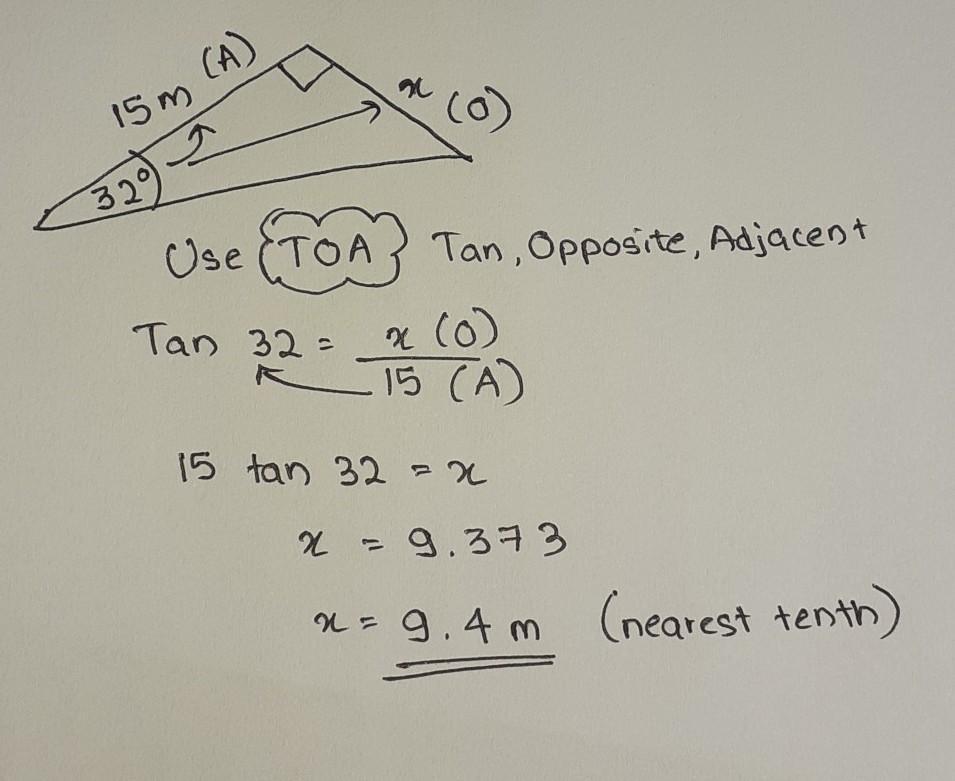 (A)
15m
x (O)
32°
Use TOA Tan, Opposite, Adjacent
Tan 32 = x (O)
15 (A)
15 tan 32 = x
x = 9.373
x = 9.4 m (nearest tenth)